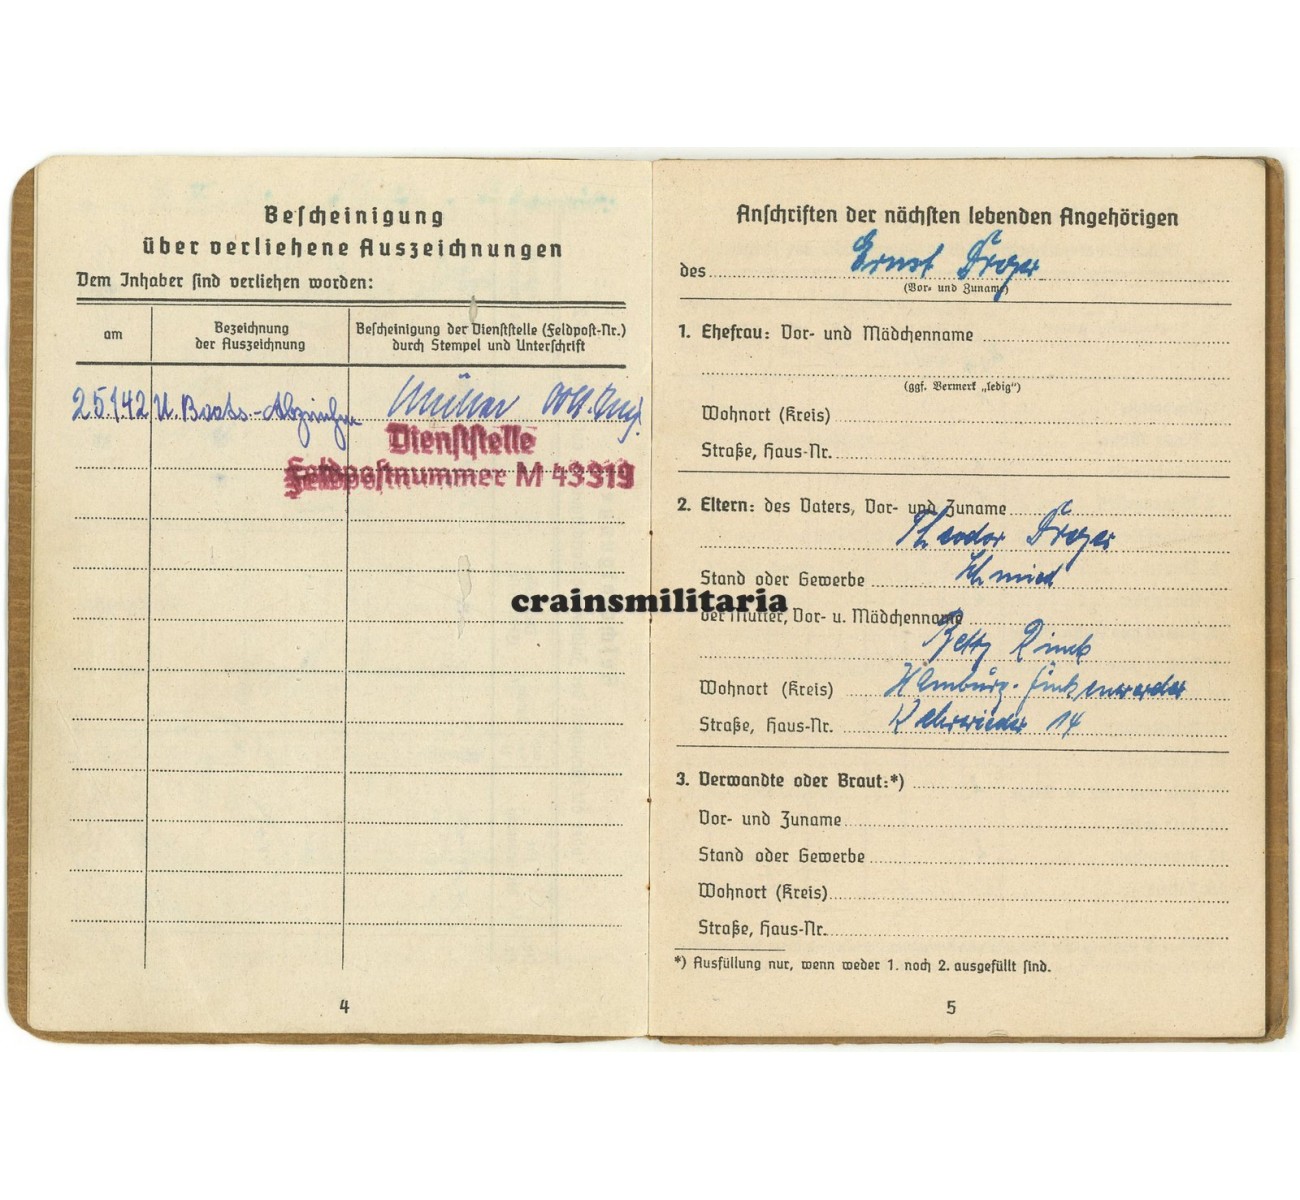 Bescheinigung
über verliehene Auszeichnungen
Dem Inhaber sind verliehen worden:
am
Bezeichnung
der Auszeichnung
Bescheinigung der Dienststelle (Feldpost-Nr.)
durch Stempel und Unterschrift
U. Boots-Abzeichen
Müller
Dienststelle
Feldpostnummer M 43319
4
Anschriften der nächsten lebenden Angehörigen
des Ernst
(Vor- und Zuname)
1. Ehefrau: Vor- und Mädchenname
(ggf. Vermerk „ledig“)
Wohnort (Kreis)
Straße, Haus-Nr.
2. Eltern: des Vaters, Vor- und Zuname
Theodor
Stand oder Gewerbe Schmied
der Mutter, Vor- u. Mädchenname
Betty
Wohnort (Kreis) Hamburg-Finkenwerder
Straße, Haus-Nr. 14
3. Verwandte oder Braut:*)
Vor- und Zuname
Stand oder Gewerbe
Wohnort (Kreis)
Straße, Haus-Nr.
*) Ausfüllung nur, wenn weder 1. noch 2. ausgefüllt sind.
5
crainsmilitaria